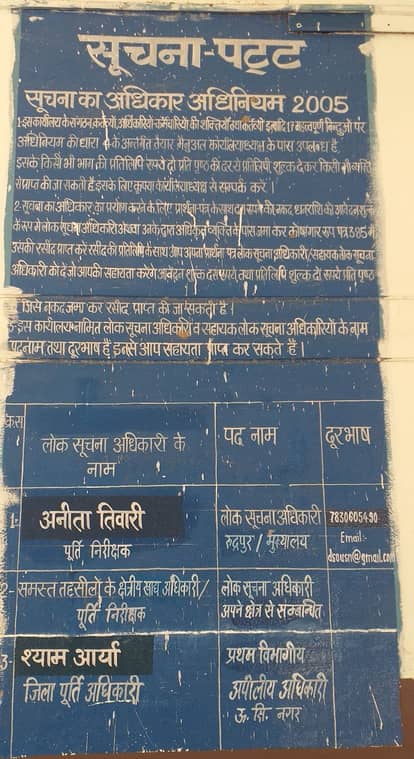 सूचना-पट्ट
सूचना का अधिकार अधिनियम 2005
1-इस कार्यालय के संगठन, कर्तव्यों, अधिकारियों कर्मचारियों की शक्तियों तथा कर्तव्यों इत्यादि 17 महत्वपूर्ण बिन्दुओं पर
अधिनियम की धारा 4 के अन्तर्गत मैनुअल कार्यालयाध्यक्ष के पास उपलब्ध है
इसके किसी भी भाग की प्रतिलिपि रुपये दो प्रति पृष्ठ की दर से प्रतिलिपी शुल्क देकर किसी भी व्यक्ति
से प्राप्त की जा सकती है इसके लिए कृपया कार्यालयाध्यक्ष से सम्पर्क करें।
2- सूचना का अधिकार का प्रयोग करने के लिए प्रार्थना-पत्र के साथ दस रूपये की नकद धनराशि की आवेदन शुल्क
के रूप में लोक सूचना अधिकारी अथवा उनके द्वारा अधिकृत व्यक्ति के पास जमा कर कोषागार रूप पत्र 385 में
उसकी रसीद प्राप्त करे रसीद की प्रतिलिपि के साथ आप अपना प्रार्थना पत्र लोक सूचना अधिकारी/सहायक लोक सूचना
अधिकारी को दें जो आपकी सहायता करेंगे आवेदन शुल्क दस रूपये तथा प्रतिलिपि शुल्क दो रूपये प्रति पृष्ठ
जिसे नकद जमा कर रसीद प्राप्त की जा सकती है।
3-इस कार्यालय नामित लोक सूचना अधिकारी व सहायक लोक सूचना अधिकारियों के नाम
पदनाम तथा दूरभाष हैं इनसे आप सहायता प्राप्त कर सकते हैं।
क्रस
लोक सूचना अधिकारी के
नाम
पद नाम
दूरभाष
1- अनीता तिवारी
पूर्ति निरीक्षक
लोक सूचना अधिकारी
रुद्रपुर / मुख्यालय
7830605490
Email:-
dsousn@gmail.com
2- समस्त तहसीलों के क्षेत्रीय खाद्य अधिकारी/
पूर्ति निरीक्षक
लोक सूचना अधिकारी
अपने क्षेत्र से सम्बन्धित
3- श्याम आर्या
जिला पूर्ति अधिकारी
प्रथम विभागीय
अपीलीय अधिकारी
ऊ. सि. नगर